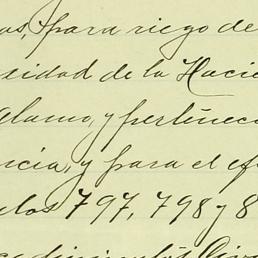 as, para riego de
sidad de la Hacie
Alamo, y pertenec
ncia, y para el efe
los 797, 798 y 8